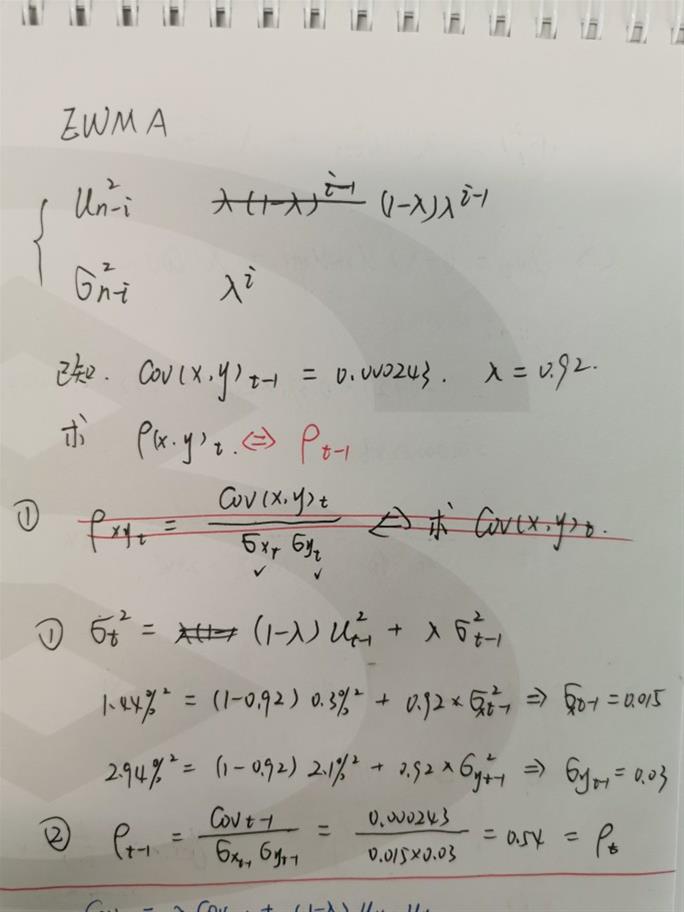 EWMA
u²ₙ₋ᵢ λ(1-λ)ⁱ⁻¹ (1-λ)λⁱ⁻¹
σ²ₙ₋ᵢ λⁱ
已知. Cov(x,y)ₜ₋₁ = 0.000243. λ = 0.92.
求 ρ(x.y)ₜ. ⇔ ρₜ₋₁
① ρxyₜ = Cov(x,y)ₜ / σxₜ σyₜ ⇔ 求 Cov(x,y)ₜ.
✓ ✓
① σₜ² = λ(1- (1-λ) u²ₜ₋₁ + λ σ²ₜ₋₁
1.44%² = (1-0.92) 0.3%² + 0.92 × σ²xₜ₋₁ ⇒ σxₜ₋₁ = 0.015
2.94%² = (1-0.92) 2.1%² + 0.92 × σ²yₜ₋₁ ⇒ σyₜ₋₁ = 0.03
② ρₜ₋₁ = Covₜ₋₁ / σxₜ₋₁ σyₜ₋₁ = 0.000243 / 0.015×0.03 = 0.54 = ρₜ